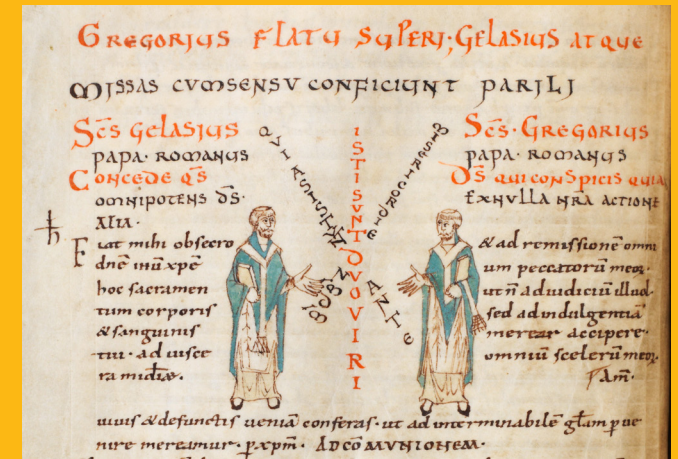 GREGORIUS FLATU SUPERI; GELASIUS ATQUE
MISSAS CUM SENSU CONFICIUNT PARILI
SCS GELASIUS
PAPA · ROMANUS
CONCEDE QS
OMNIPOTENS DS·
ALIA·
Fiat mihi obsecro
dne ihu xpe
hoc sacramen
tum corporis
& sanguinis
tui · ad uisce
ISTI SUNT DUO VIRI
ANTE
SCS · GREGORIUS
PAPA · ROMANUS
DS QUI CONSPICIS QUIA
EX NULLA NRA ACTIONE
& ad remissione omni
um peccatoru meoꝝ·
ut n ad iudiciu illud·
sed ad indulgentia
merear accipere·
omniu sceleru meoꝝ·
Am̄·
uiuis & defunctis uenia conferas· ut ad interminabile gl̄am ꝑue
nire mereamur· ꝑ xpm̄· AD COMMUNIONEM·